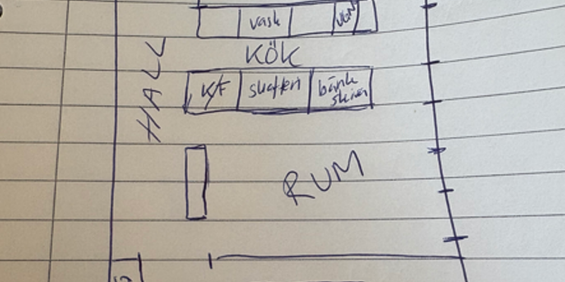 vask
KÖK
HALL
K/F skafferi bänk
skiva
RUM